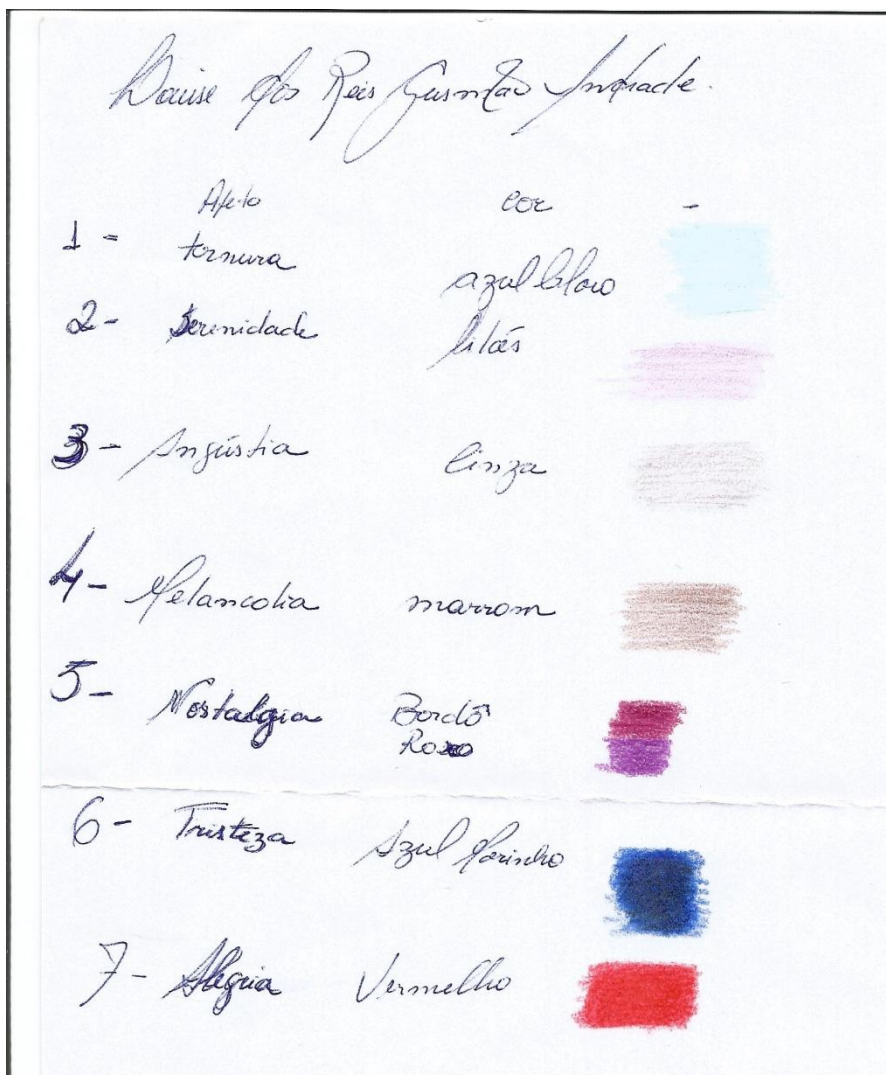 Denise dos Reis Gusmão Andrade.
Afeto cor -
1 - ternura azul claro
2 - Serenidade lilás
3 - Angústia Cinza
4 - Melancolia marrom
5 - Nostalgia Bordô
Roxo
6 - Tristeza Azul Marinho
7 - Alegria Vermelho